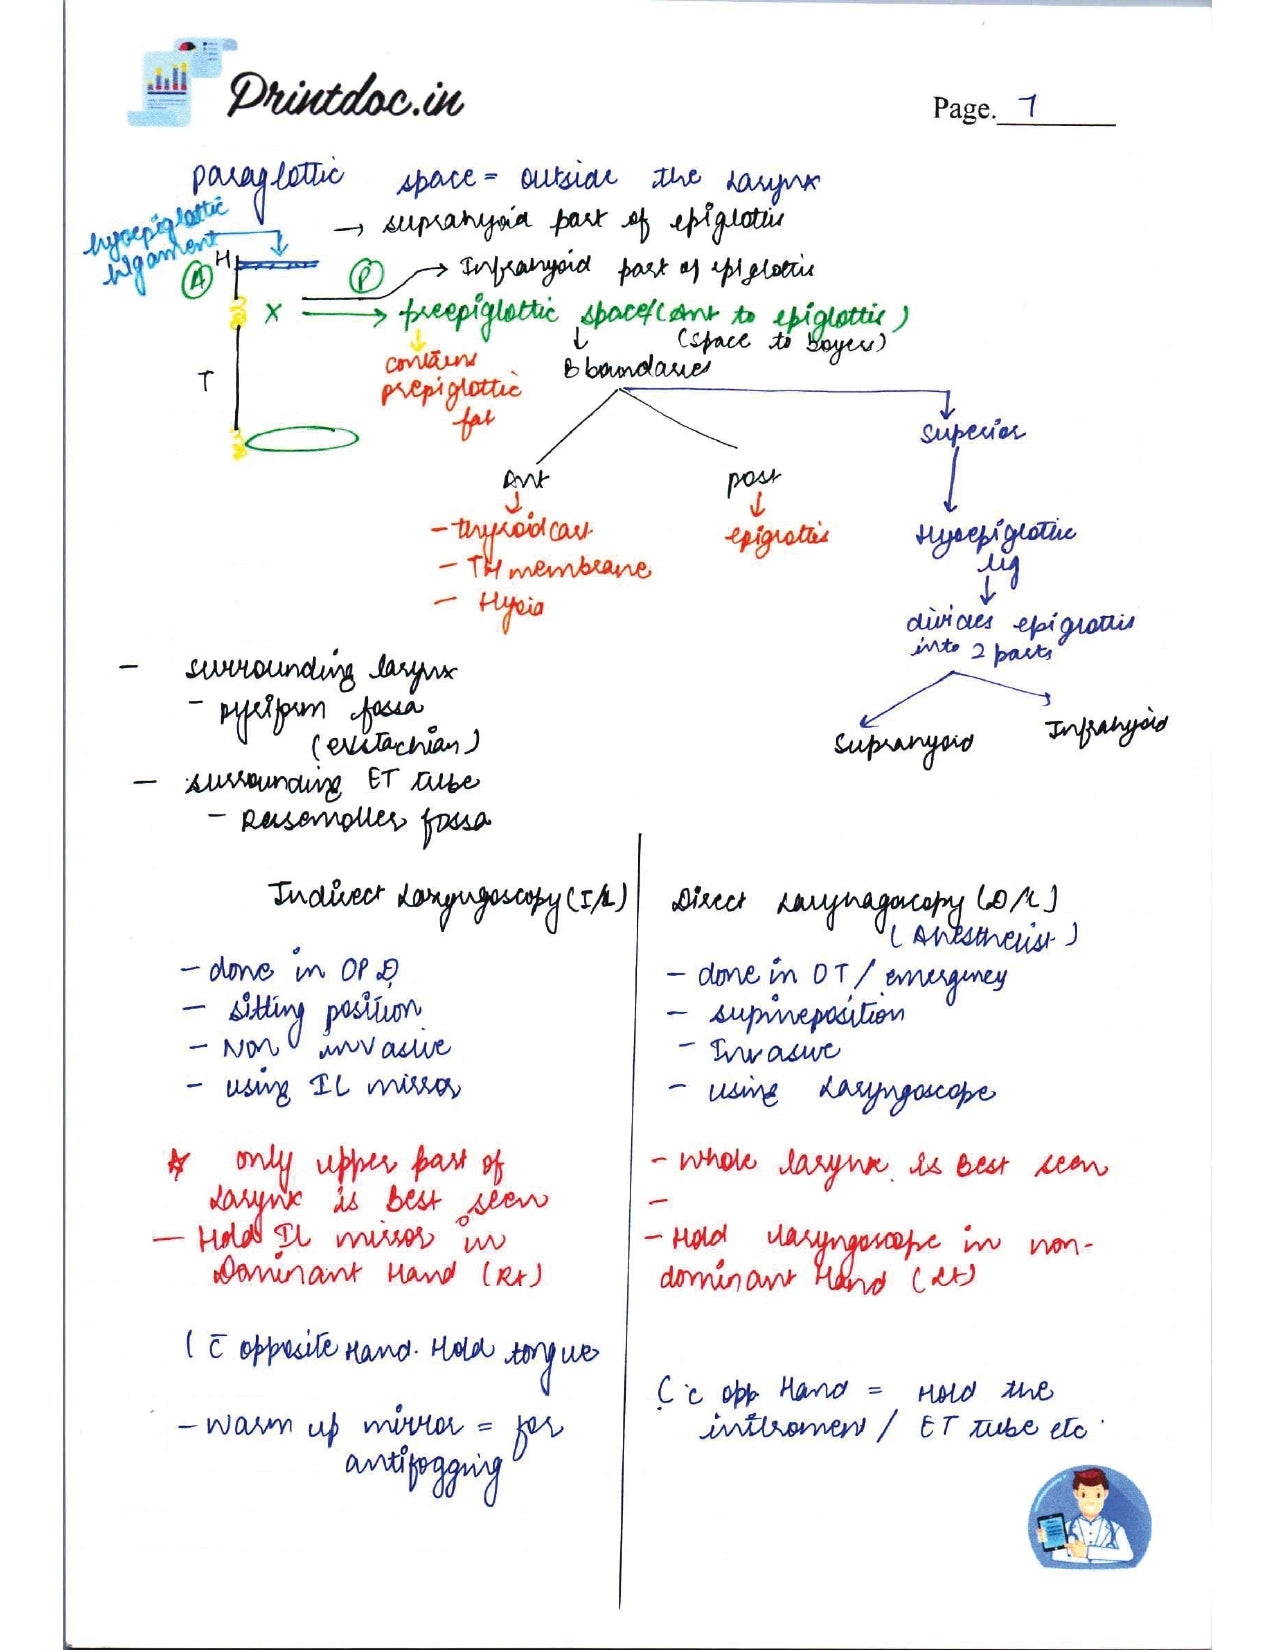 Printdoc.in
Page. 7
paraglottic space = outside the larynx
hyoepiglottic ligament
→ suprahyoid part of epiglottis
H
A
P
→ Infrahyoid part of epiglottis
X → preepiglottic space/(Ant to epiglottis)
(space to boyers)
T
contains prepiglottic fat
B boundaries
Superior
Ant
post
- thyroid cart
- TH membrane
- Hyoid
epiglottis
Hyoepiglottic lig
divides epiglottis into 2 parts
Suprahyoid
Infrahyoid
- surrounding larynx
- pyriform fossa
(eustachian)
- surrounding ET tube
- Rusemoller fossa
Indirect Laryngoscopy (I/L)
- done in OPD
- sitting position
- Non invasive
- using IL mirror
☆ only upper part of
larynx is best seen
- Hold IL mirror in
Dominant Hand (Rt)
( c̄ opposite Hand. Hold tongue
- Warm up mirror = for
antifogging
Direct Larynagoscopy (D/L)
(Anesthetist)
- done in OT / emergency
- supineposition
- Invasive
- using Laryngoscope
- whole larynx is best seen
-
- Hold laryngoscope in non-
dominant Hand (Lt)
( c̄ opp Hand = Hold the
intsroment / ET tube etc.